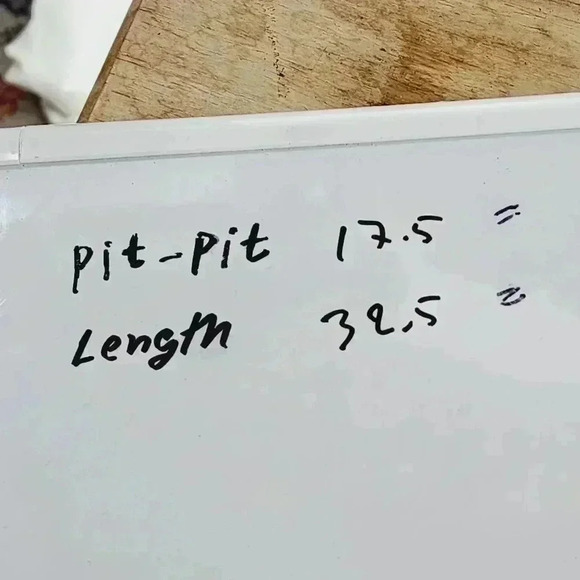 Pit-Pit 17.5 "
Length 32.5 "